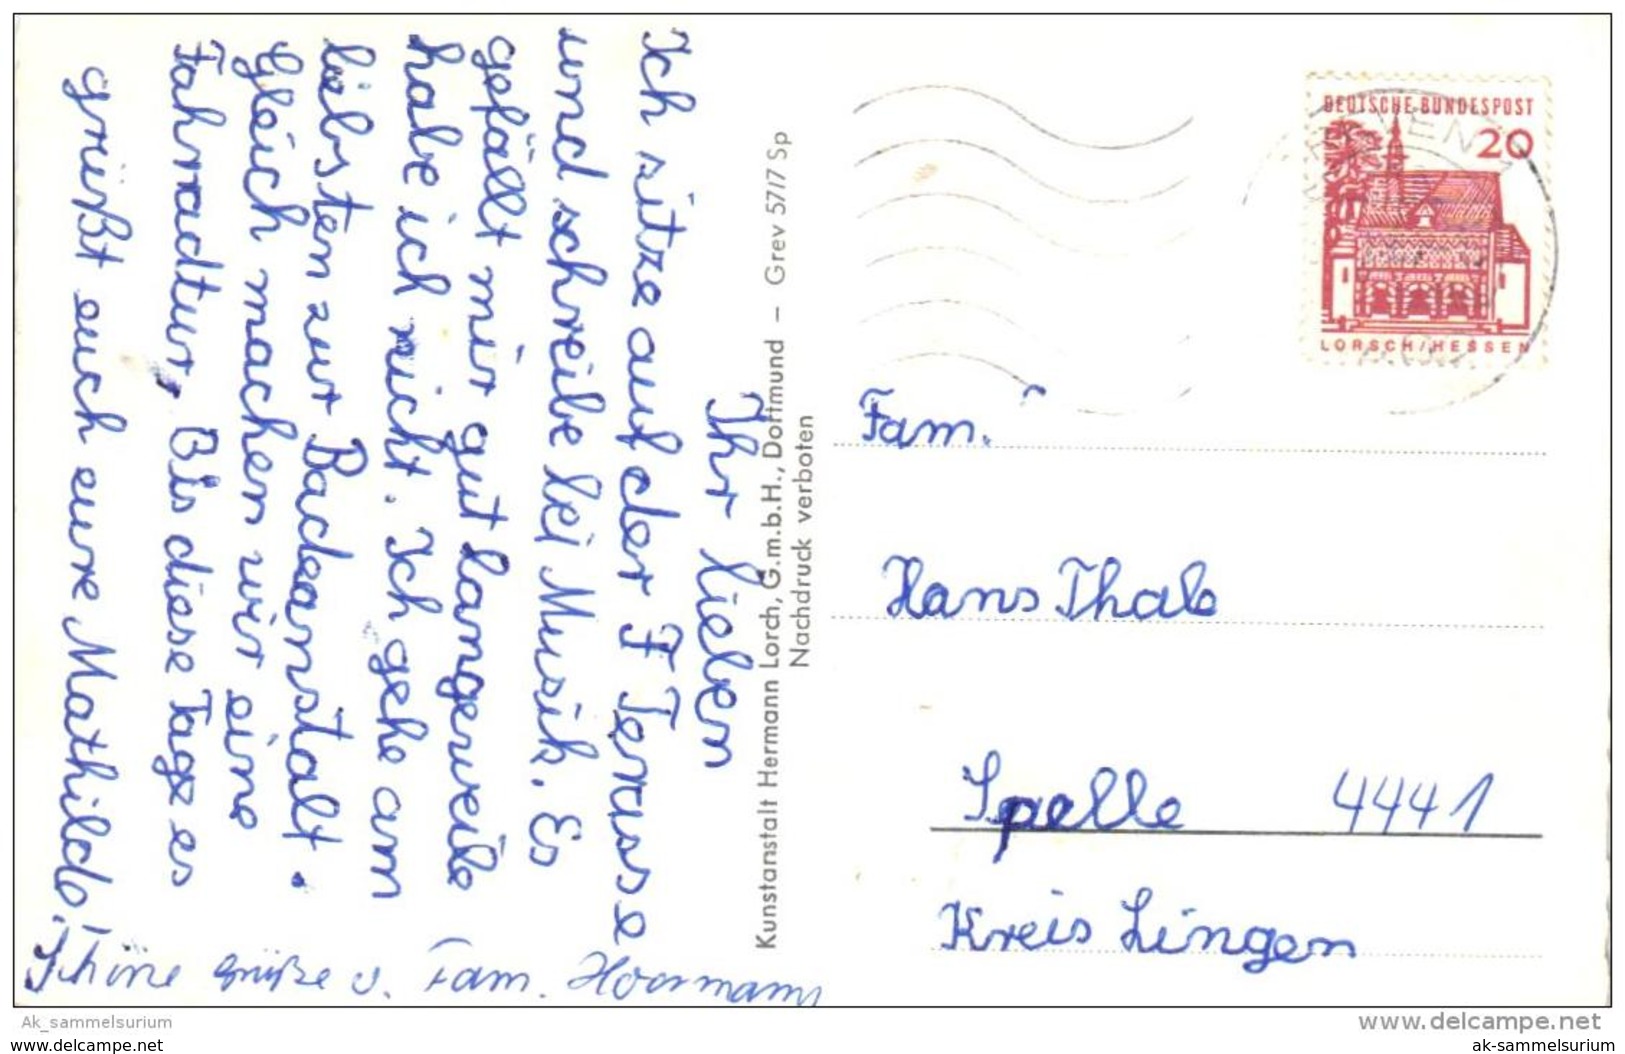 Ihr lieben
Ich sitze auf der F Terasse
und schreibe bei Musik. Es
gefällt mir gut langeweile
habe ich nicht. Ich gehe am
liebsten zur Badeanstalt.
Gleich machen wir eine
Fahrradtur, Bis diese Tage es
grüßt euch eure Mathilde.
Schöne Grüße v. Fam. Hoormann
Kunstanstalt Hermann Lorch, G.m.b.H., Dortmund – Grev 5717 Sp
Nachdruck verboten
DEUTSCHE BUNDESPOST
20
LORSCH/HESSEN
Fam.
Hans Thale
Spelle 4441
Kreis Lingen
Ak_sammelsurium
www.delcampe.net
www.delcampe.net
ak-sammelsurium